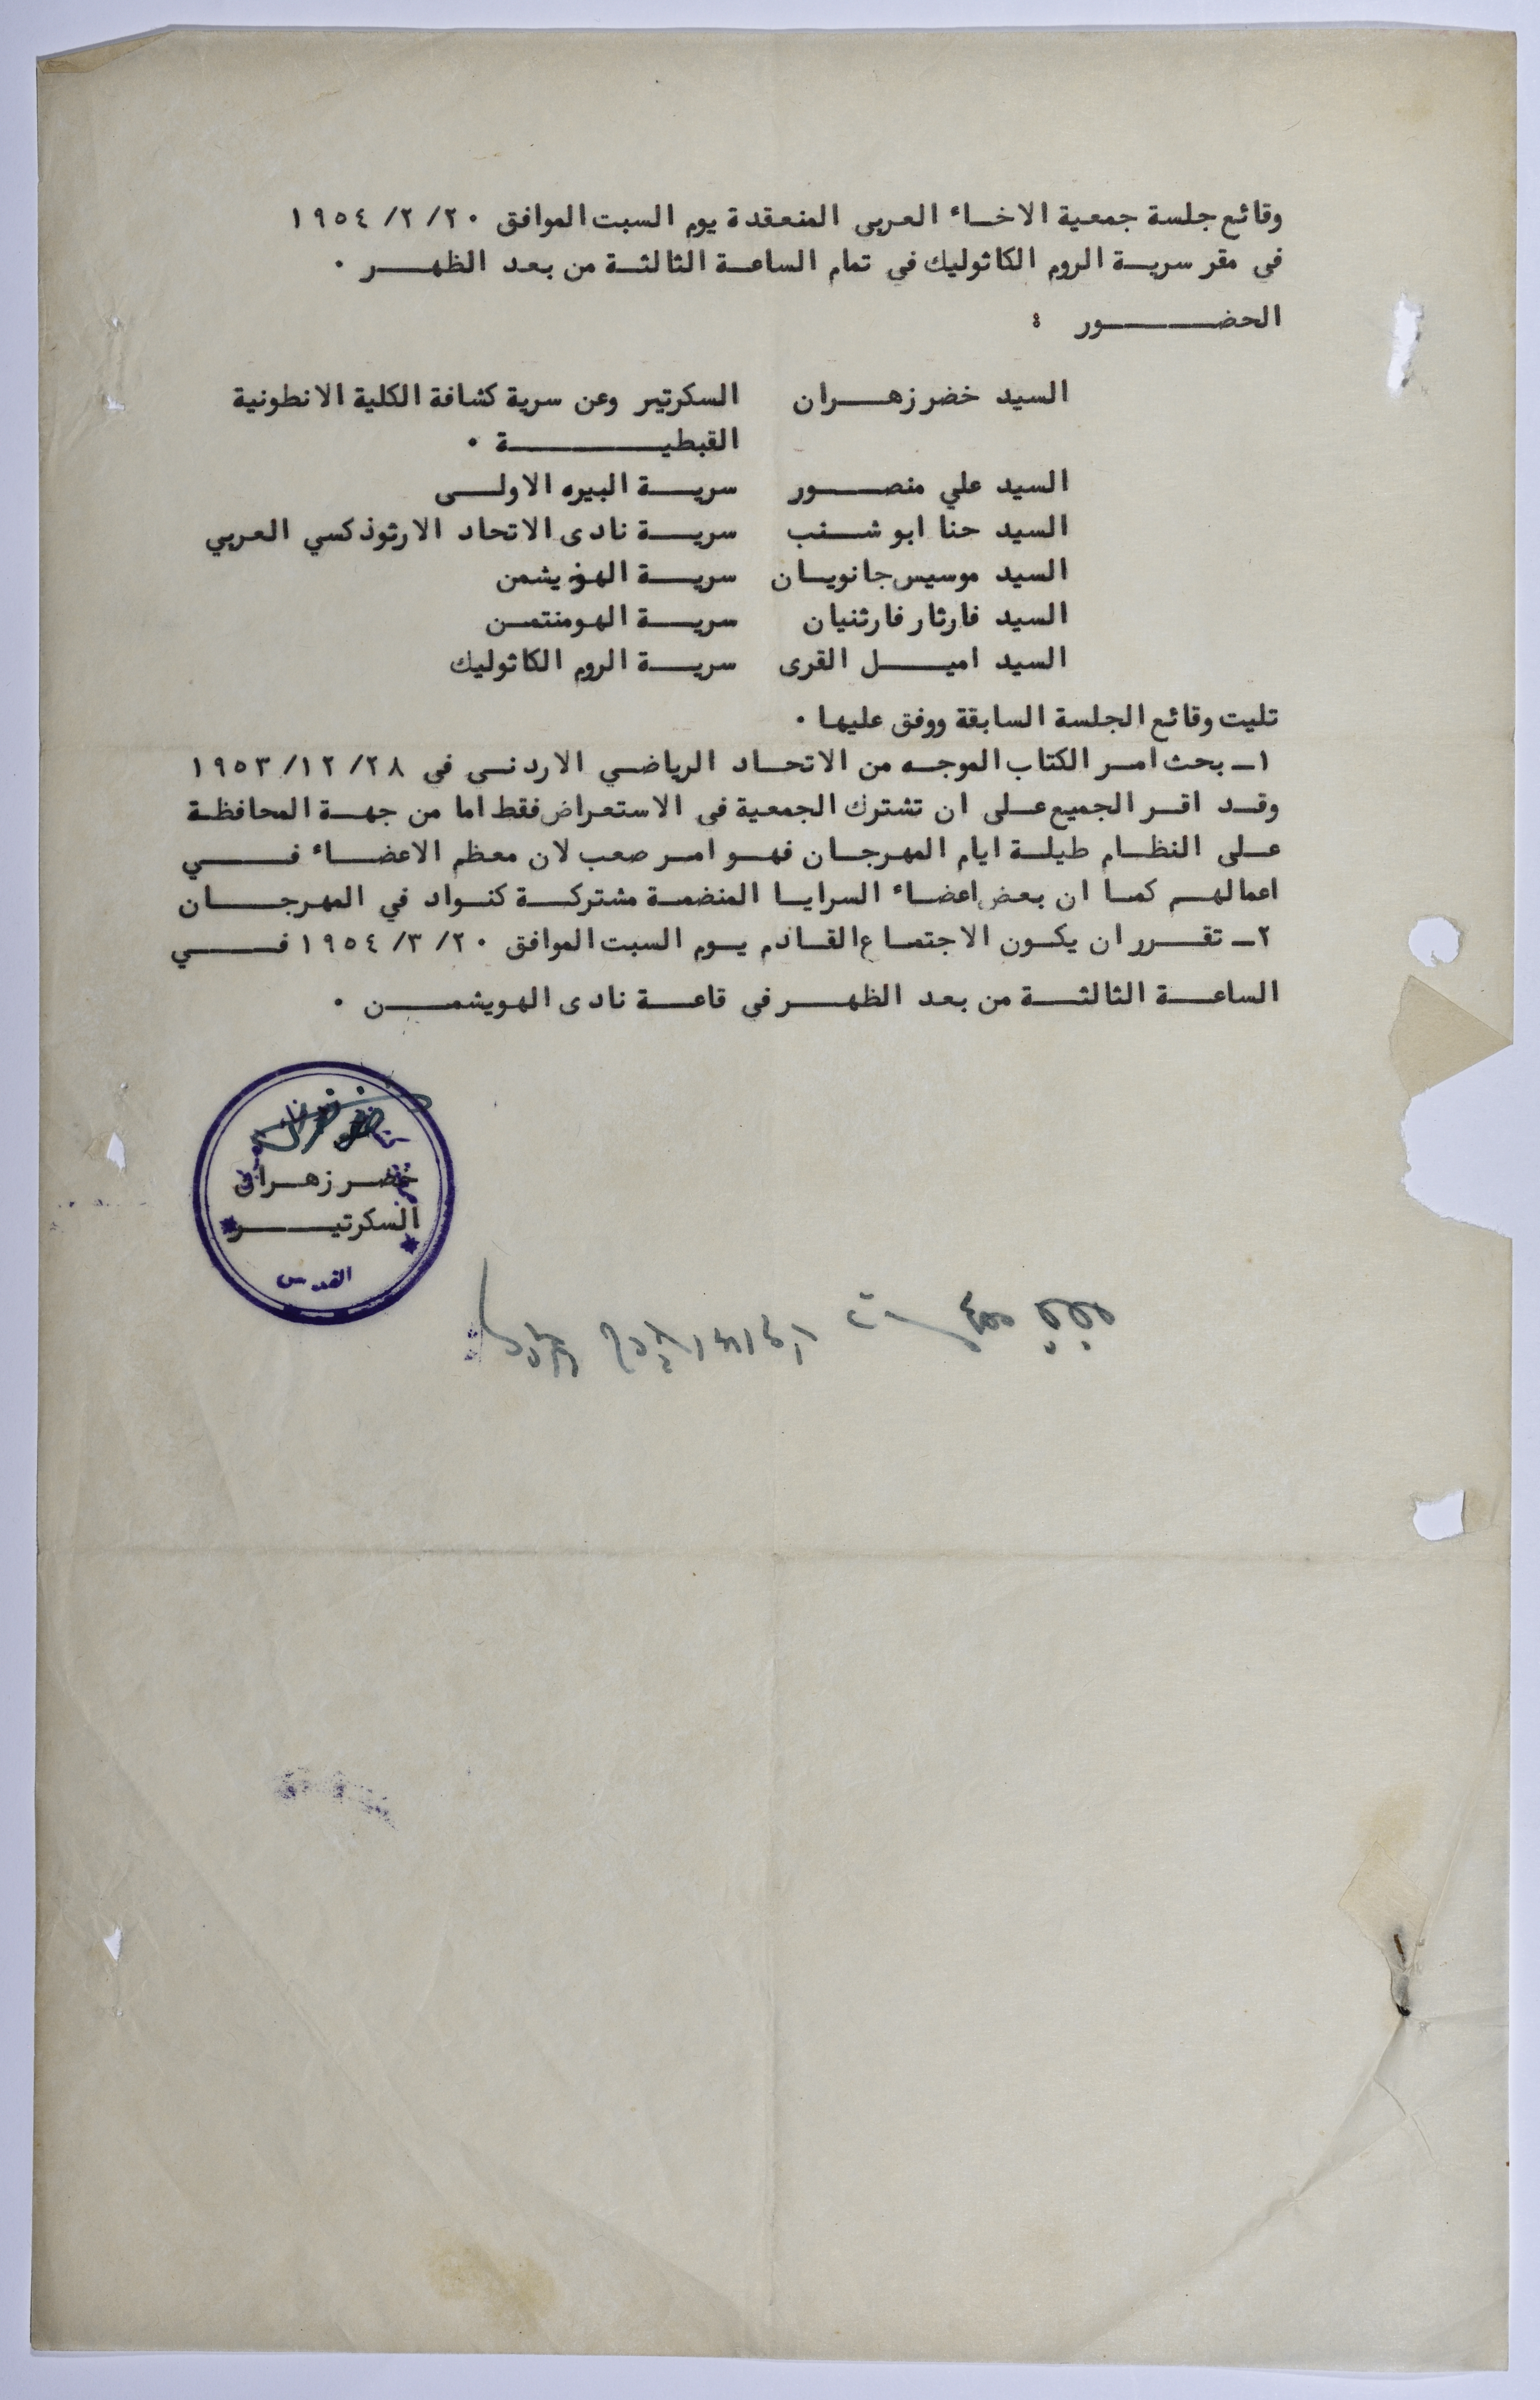 وقائع جلسة جمعية الاخاء العربى المنعقدة يوم السبت الموافق ٢٠/٢/١٩٥٤
فى مقر سرية الروم الكاثوليك في تمام الساعة الثالثة من بعد الظهر ٠
الحضور :
السيد خضر زهران السكرتير وعن سرية كشافة الكلية الانطونية
القبطية ٠
السيد علي منصور سرية البيره الاولى
السيد حنا ابو شنب سرية نادى الاتحاد الارثوذكسي العربي
السيد موسيس جانويان سرية الهويشمن
السيد فارثار فارثنيان سرية الهومنتمن
السيد اميل القرى سرية الروم الكاثوليك
تليت وقائع الجلسة السابقة ووفق عليها ٠
١ـ بحث امر الكتاب الموجه من الاتحاد الرياضي الاردني في ٢٨/١٢/١٩٥٣
وقد اقر الجميع على ان تشترك الجمعية فى الاستعراض فقط اما من جهة المحافظة
على النظام طيلة ايام المهرجان فهو امر صعب لان معظم الاعضاء في
اعمالهم كما ان بعض اعضاء السرايا المنضمة مشتركة كنواد في المهرجان
٢ـ تقرر ان يكون الاجتماع القادم يوم السبت الموافق ٢٠/٣/١٩٥٤ في
الساعة الثالثة من بعد الظهر في قاعة نادى الهويشمن ٠
خضر زهران
السكرتير
القدس